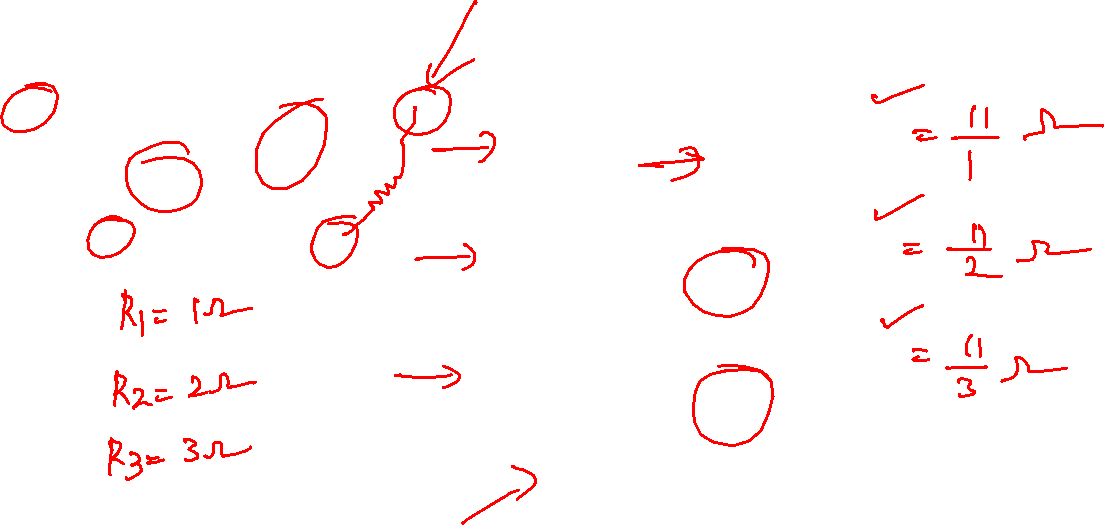 R1 = 1Ω
R2 = 2Ω
R3 = 3Ω
= 11/1 Ω
= 11/2 Ω
= 11/3 Ω